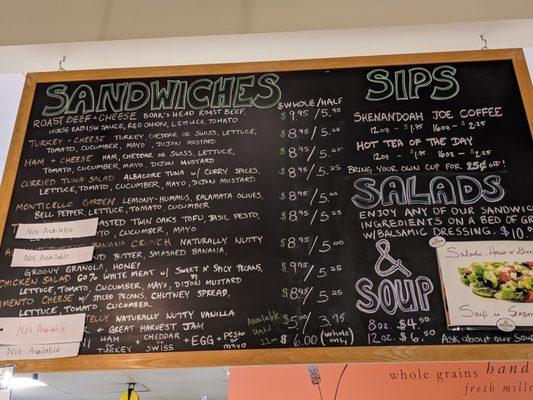 SANDWICHES
$WHOLE/HALF
ROAST BEEF + CHEESE BOAR'S HEAD ROAST BEEF,
HORSE RADISH SAUCE, RED ONION, LETTUCE, TOMATO
$9.95/5.95
TURKEY + CHEESE TURKEY, CHEDDAR OR SWISS, LETTUCE,
TOMATO, CUCUMBER, MAYO, DIJON MUSTARD
$8.95/5.25
HAM + CHEESE HAM, CHEDDAR OR SWISS, LETTUCE,
TOMATO, CUCUMBER, MAYO, DIJON MUSTARD
$8.95/5.25
CURRIED TUNA SALAD ALBACORE TUNA W/ CURRY SPICES,
LETTUCE, TOMATO, CUCUMBER, MAYO, DIJON MUSTARD
$8.95/5.25
MONTICELLO GARDEN LEMONY-HUMMUS, KALAMATA OLIVES,
BELL PEPPER, LETTUCE, TOMATO, CUCUMBER
$8.95/5.00
Not Available
ROASTED TWIN OAKS TOFU, BASIL PESTO,
TOMATO, CUCUMBER, MAYO
$8.95/5.25
Not Available
BANANA CRUNCH NATURALLY NUTTY
NUT BUTTER, SMASHED BANANA,
GROOVY GRANOLA, HONEY
$8.45/5.00
CHICKEN SALAD 60% WHITE MEAT W/ SWEET N' SPICY PECANS,
LETTUCE, TOMATO, CUCUMBER, MAYO, DIJON MUSTARD
5.25
PIMENTO CHEESE W/ SPICED PECANS, CHUTNEY SPREAD,
LETTUCE, TOMATO, CUCUMBER
$8.95/5.25
Not Available
JELLY NATURALLY NUTTY VANILLA
+ GREAT HARVEST JAM
3.95
Not Available
HAM OR TURKEY + CHEDDAR OR SWISS + EGG + PESTO OR MAYO
Available Until 11am
$6.00 (whole only)
SIPS
SHENANDOAH JOE COFFEE
12oz - $1.75 16oz - $2.25
HOT TEA OF THE DAY
12oz - $1.75 16oz - $2.25
BRING YOUR OWN CUP FOR 25¢ off!
SALADS
ENJOY ANY OF OUR SANDWICH
INGREDIENTS ON A BED OF
W/BALSAMIC DRESSING. $10
& SOUP
8oz. $4.50
12oz. $6.50
Salads: House or
Soup in
Ask about our Soup
whole grains
fresh